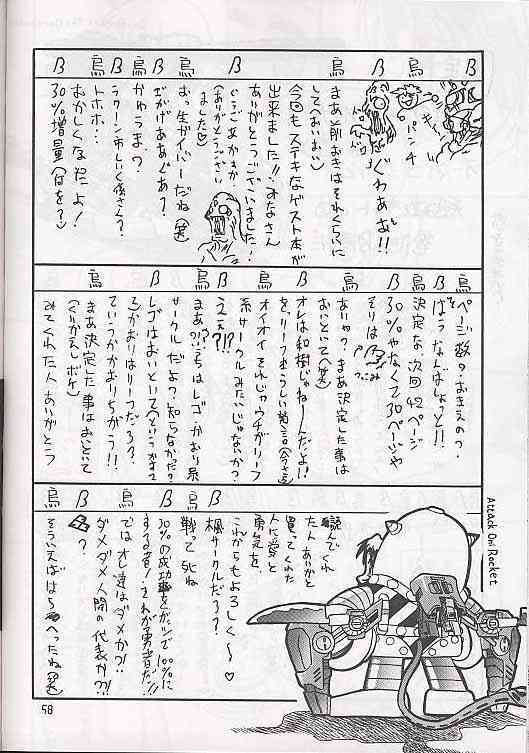 β 烏 β 烏 β 烏 β 烏 β
ぐわああ!!
パンチ
まあと前おきはそれくらいに
しておいおい♡
今回もステキなゲスト本が
出来ました!!みなさん
ありがとうございました!
(ありがとうござい
ました♡)
おっ生ガイバーだね(笑)
かゆうま?
トホホ…
おかしくなたよ!
30%増量(はを?)
烏 β 烏 β 烏 β 烏 β
ページ数?おきえの?
ばうなんばしょっと!!
決定な、次回42ページ
30%やなくて30ページや
そりは
ありゃ?まあ決定した事は
おいといて(笑)
オレは和樹じゃねーんだよ!!
オイオイそれじゃウチがリーフ
系サークルみたいじゃないか?
ええ?!?
まあ?!?うちはレゴかおり系
サークルだよっ知らなかった?
かおりはリーフだろ?
ていうかかおりちがう!!
まあ決定した事はおいといて
(くりかえしボケ)
みてくれた人ありがとう
烏 β 烏 β 烏 β
読んでくれ
た人ありがと
買ってくれた
人に愛と
勇気を、
これからもよろしく~♡
楓サークルだろ?
戦って死ね
30%の成功率をガッツで100%に
する者!それが勇者だ!!
ではオレ達はダメか?!
ダメダメ人間の代表か?!
?
そういえばはらへったね(笑)
Attack On! Rocket
58